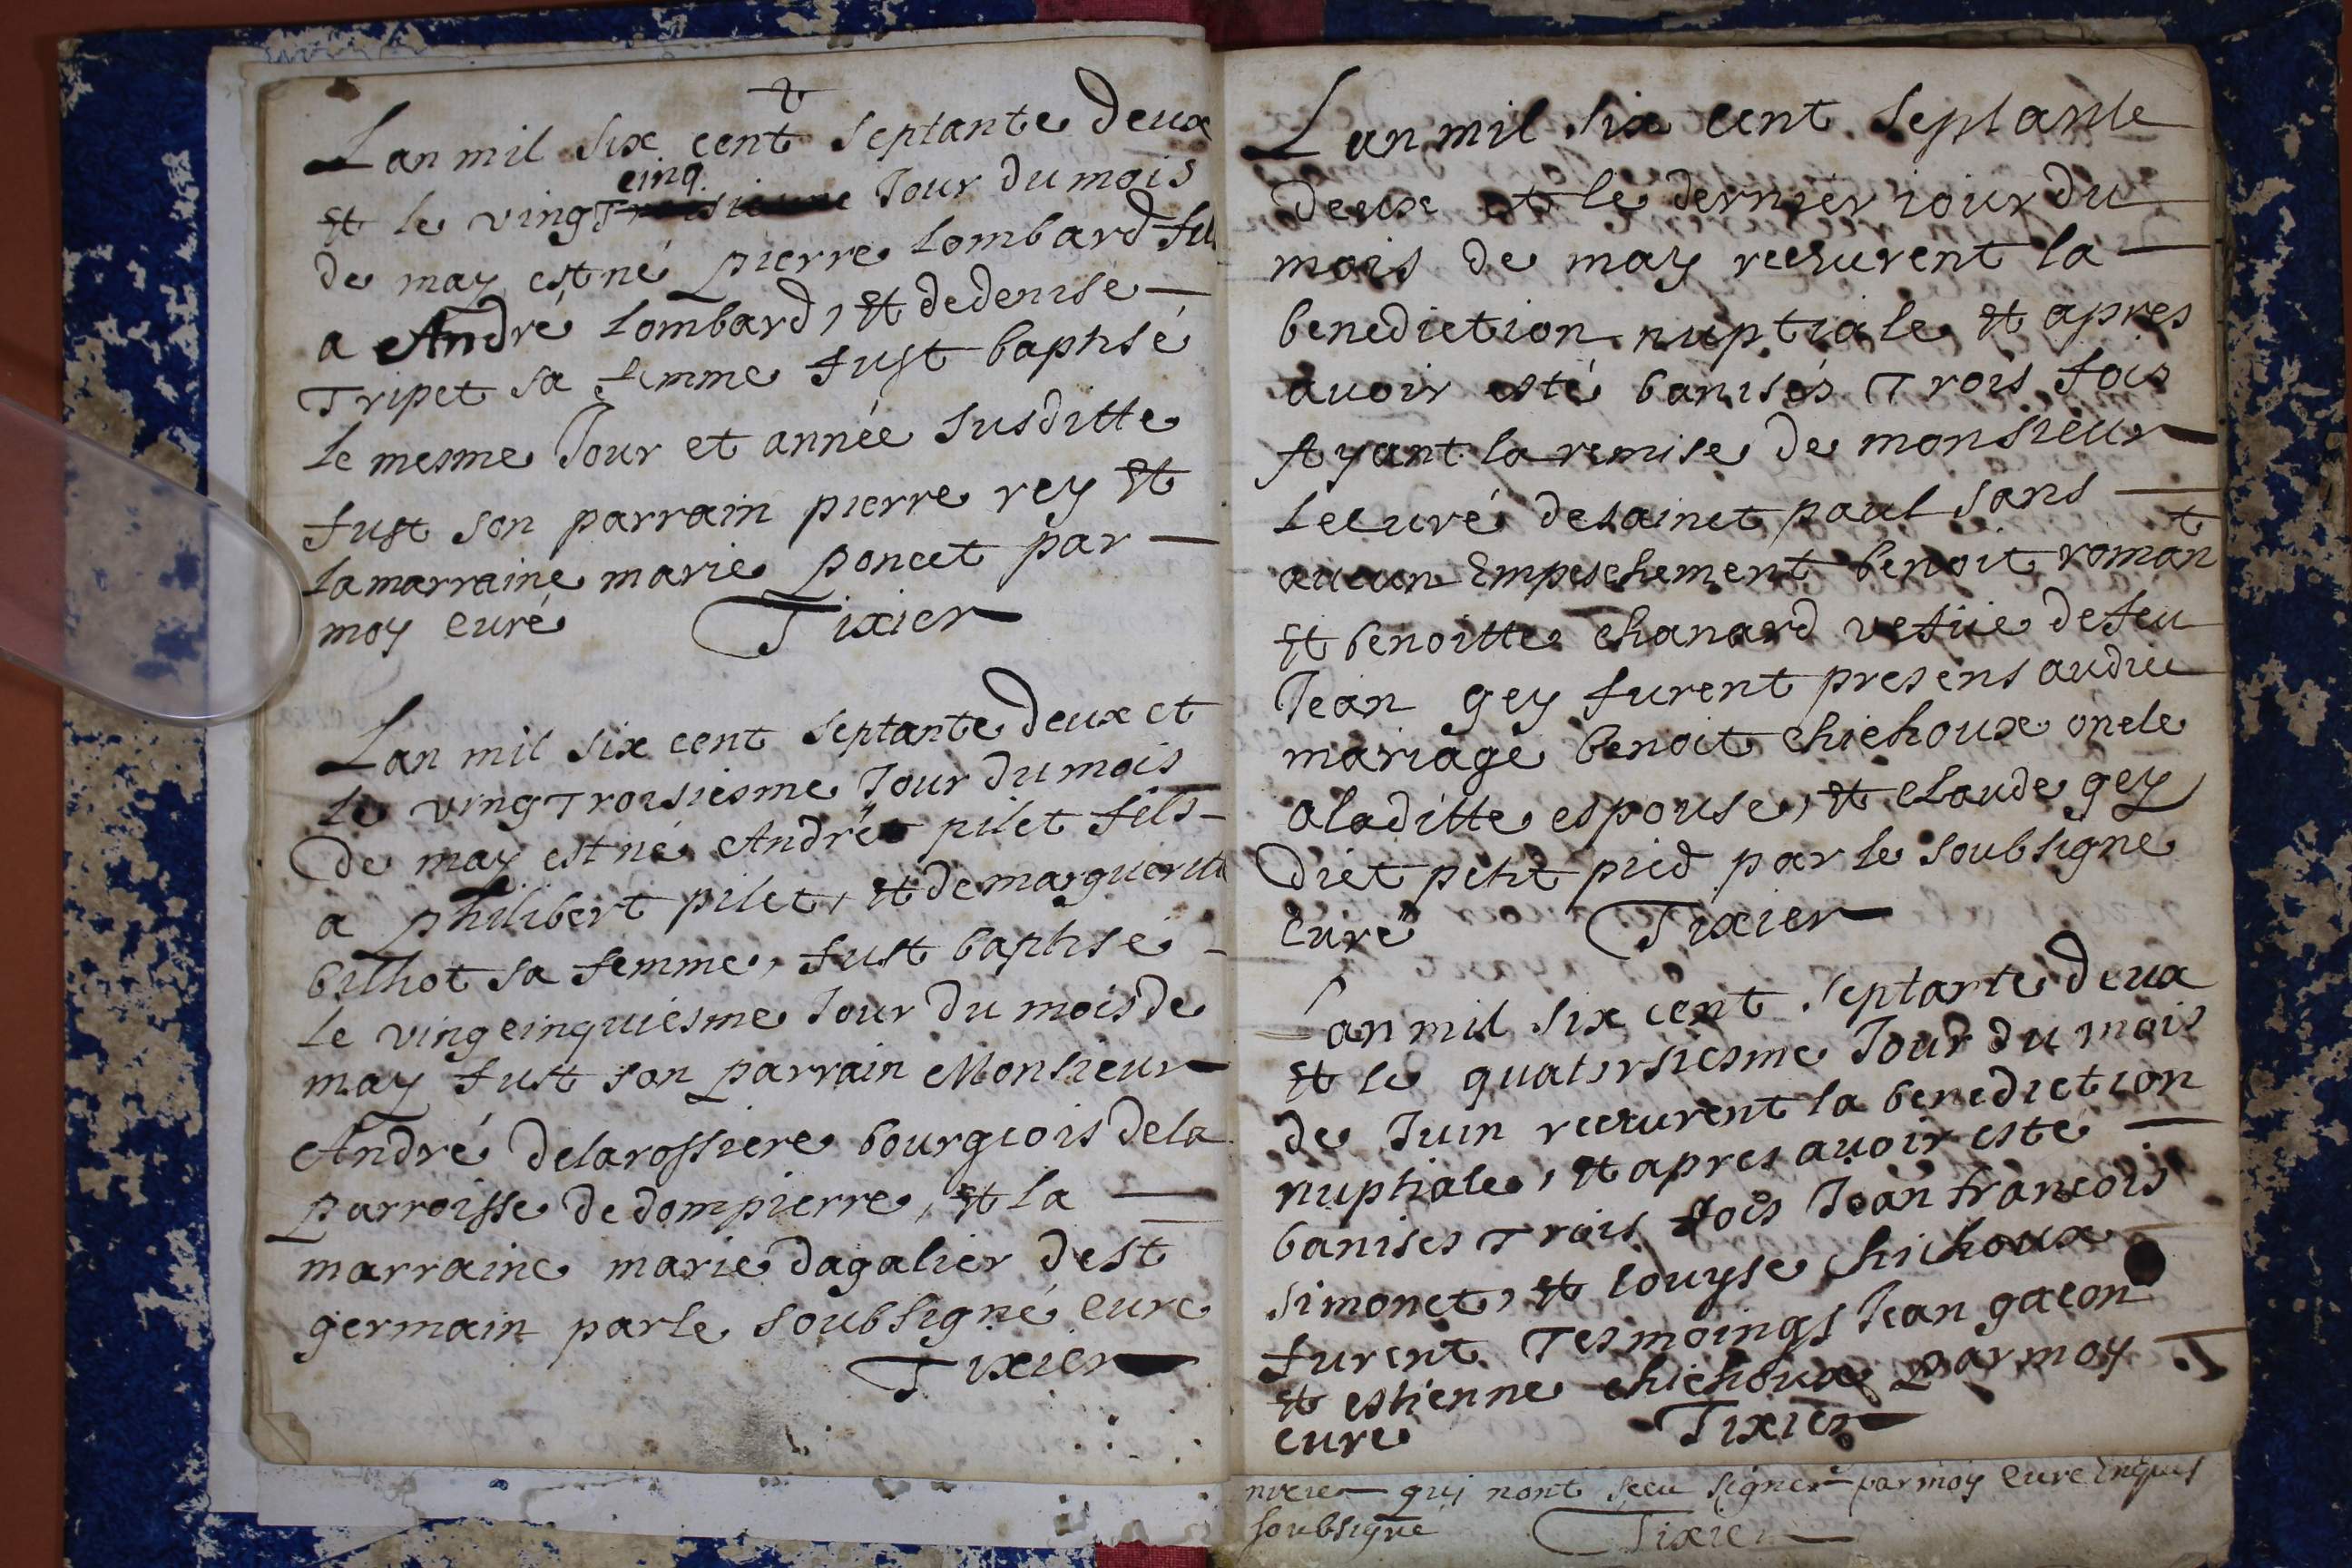 Lan mil six cent septante deux
et le vingt cinq Jour du mois
de may est né pierre lombard fils
a André lombard, et de denise
Tripet sa femme fust baptisé
le mesme Jour et année susditte
fust son parrain pierre rey et
la marraine marie poncet par
moy curé Tixier
Lan mil six cent septante deux et
le vingtroisiesme Jour du mois
de may est né André pilet fils
a philibert pilet, et de marguerite
bilhot sa femme, fust baptisé
le vingcinquiesme Jour du mois de
may fust son parrain Monsieur
André delarossiere bourgeois de la
parroisse de dompierre, et la
marraine marie dagalier de st
germain par le soubsigné curé
Tixier
Lan mil six cent septante
deux et le dernier iour du
mois de may receurent la
benediction nuptiale et apres
auoir esté banisés trois fois
Ayant la remise de monsieur
le curé de sainct paul sans
aucun Empeschement benoit roman
et benoitte chanard vefue de feu
Jean gey furent presens audict
mariage benoit chichoux oncle
a laditte espouse, et claude gey
dict petit pied par le soubsigne
curé Tixier
Lan mil six cent septante deux
et le quatorsiesme Jour du mois
de Juin receurent la benediction
nuptiale, et apres auoir esté
banises trois fois Jean francois
simonet, et louyse chichoux
furent Tesmoings Jean gacon
et estienne chichoux par moy
curé Tixier
qui nont sceu signer par moy curé
soubsigné Tixier